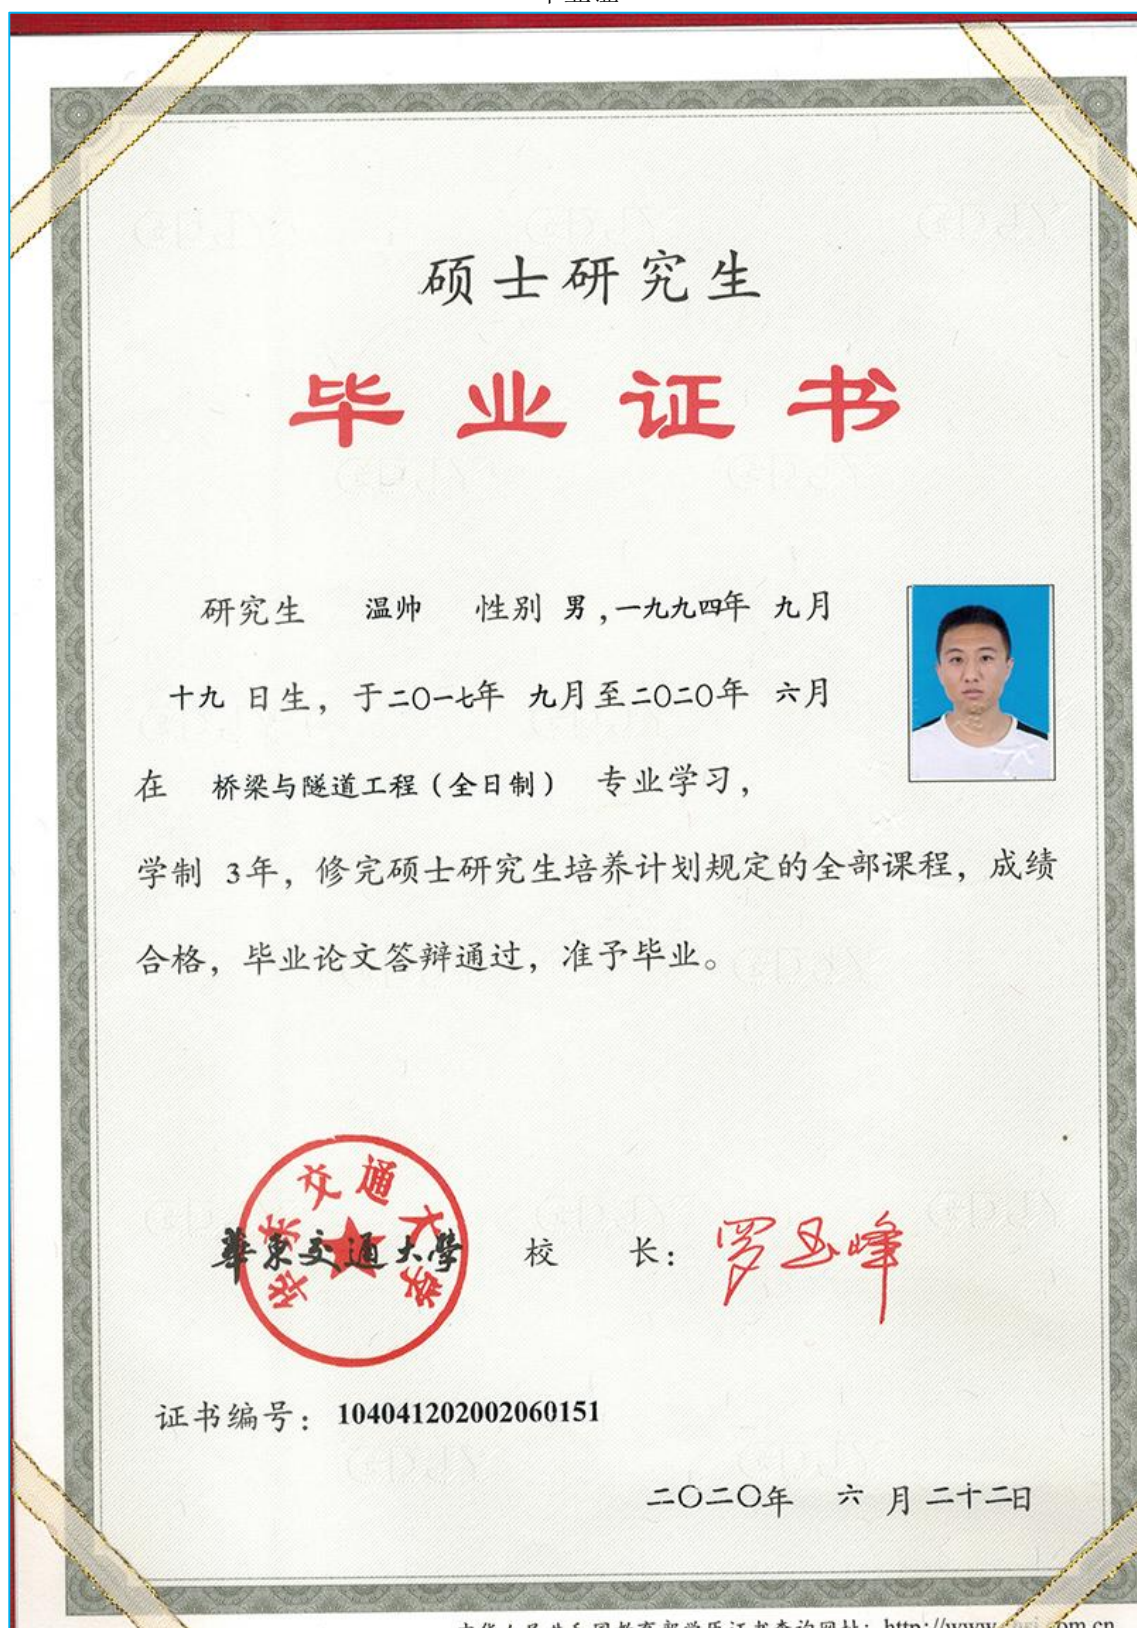 毕业证
硕士研究生
毕业证书
研究生 温帅 性别 男，一九九四年 九月
十九 日生，于二〇一七年 九月至二〇二〇年 六月
在 桥梁与隧道工程（全日制） 专业学习，
学制 3年，修完硕士研究生培养计划规定的全部课程，成绩
合格，毕业论文答辩通过，准予毕业。
华东交通大学
華東交通大學 校 长：罗玉峰
证书编号：104041202002060151
二〇二〇年 六 月 二十二日
中华人民共和国教育部学历证书查询网址：http://www